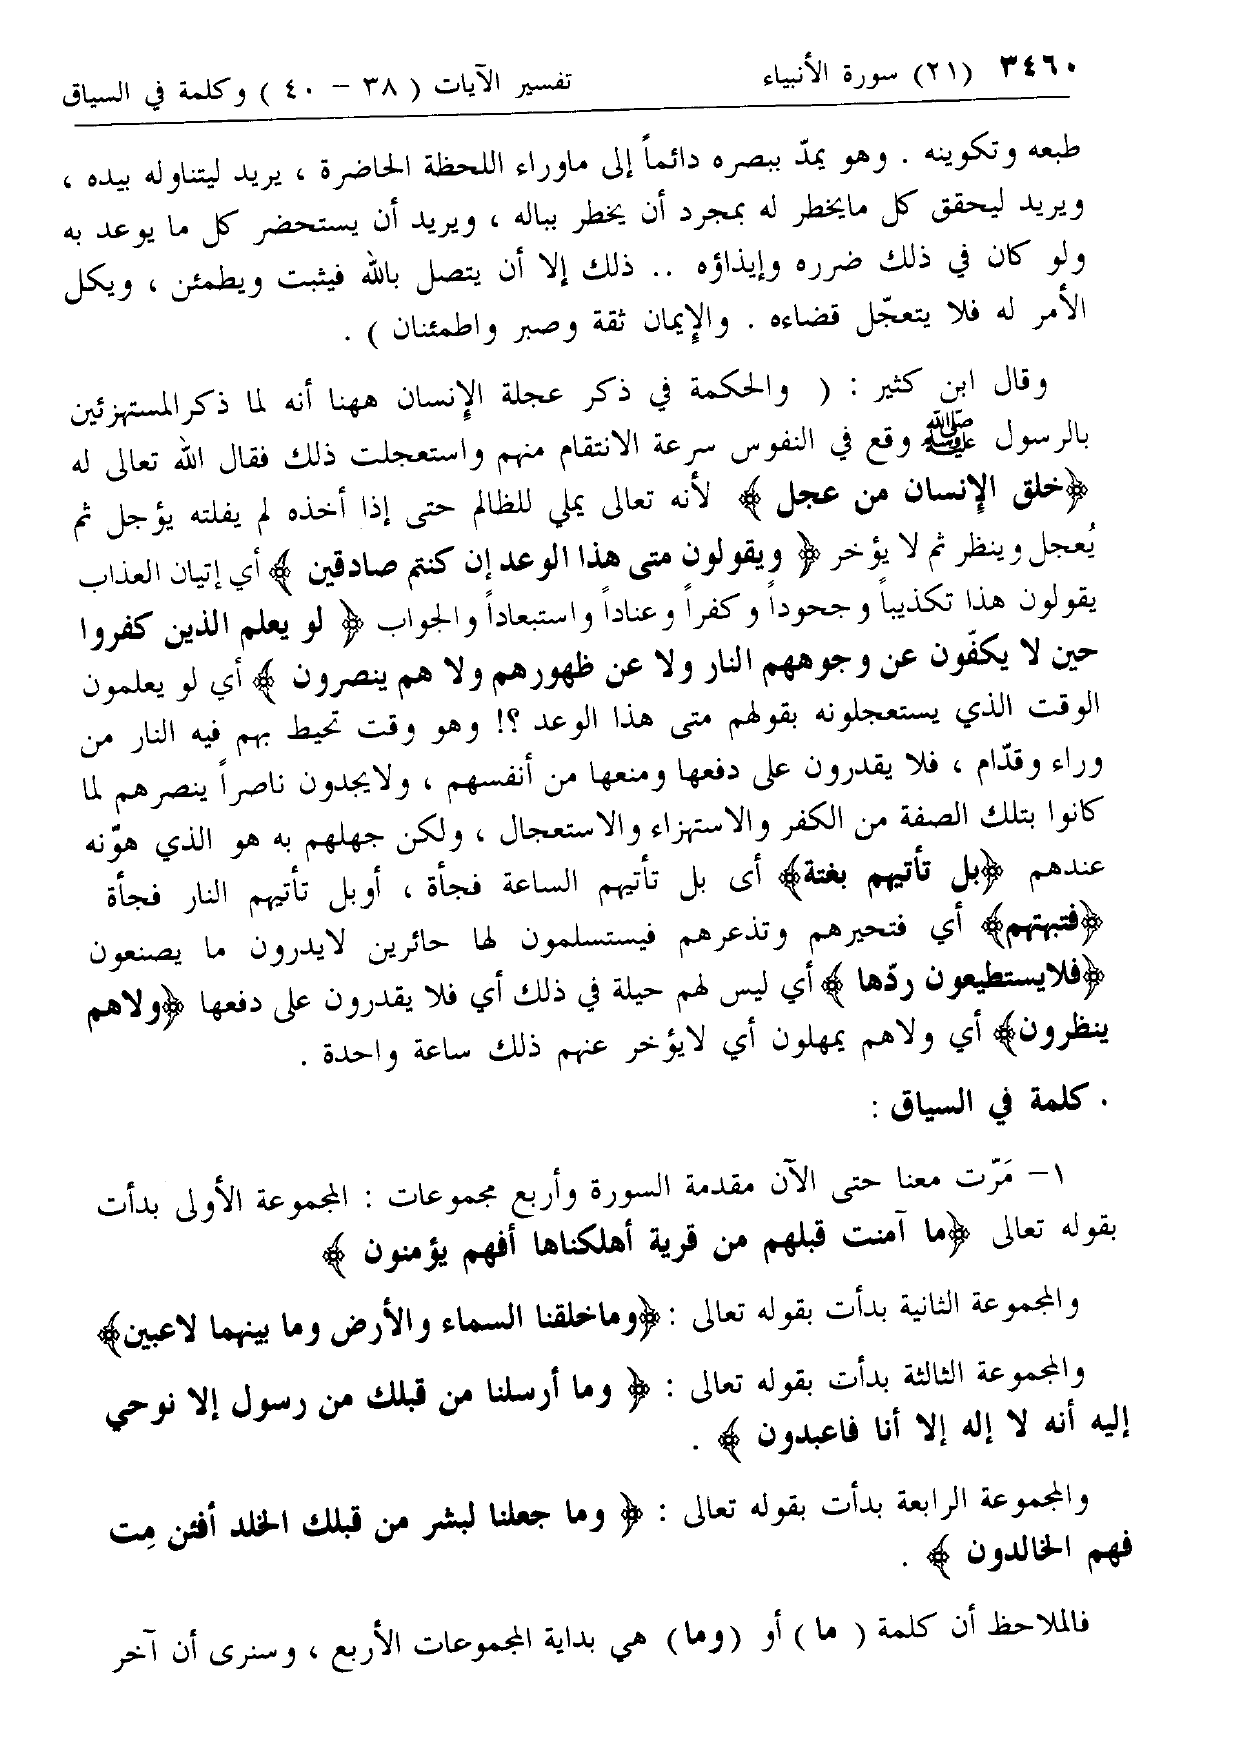 ٣٤٦٠ (٢١) سورة الأنبياء تفسير الآيات ( ٣٨ - ٤٠ ) وكلمة في السياق
طبعه وتكوينه . وهو يمدّ ببصره دائماً إلى ماوراء اللحظة الحاضرة ، يريد ليتناوله بيده ،
ويريد ليحقق كل مايخطر له بمجرد أن يخطر بباله ، ويريد أن يستحضر كل ما يوعد به
ولو كان في ذلك ضرره وإيذاؤه .. ذلك إلا أن يتصل بالله فيثبت ويطمئن ، ويكل
الأمر له فلا يتعجّل قضاءه . والإيمان ثقة وصبر واطمئنان ) .
وقال ابن كثير : ( والحكمة في ذكر عجلة الإنسان ههنا أنه لما ذكرالمستهزئين
بالرسول ﷺ وقع في النفوس سرعة الانتقام منهم واستعجلت ذلك فقال الله تعالى له
﴿خلق الإنسان من عجل ﴾ لأنه تعالى يملي للظالم حتى إذا أخذه لم يفلته يؤجل ثم
يُعجل وينظر ثم لا يؤخر ﴿ ويقولون متى هذا الوعد إن كنتم صادقين ﴾ أي إتيان العذاب
يقولون هذا تكذيباً وجحوداً وكفراً وعناداً واستبعاداً والجواب ﴿ لو يعلم الذين كفروا
حين لا يكفّون عن وجوههم النار ولا عن ظهورهم ولا هم ينصرون ﴾ أي لو يعلمون
الوقت الذي يستعجلونه بقولهم متى هذا الوعد ؟! وهو وقت تحيط بهم فيه النار من
وراء وقدّام ، فلا يقدرون على دفعها ومنعها من أنفسهم ، ولايجدون ناصراً ينصرهم لما
كانوا بتلك الصفة من الكفر والاستهزاء والاستعجال ، ولكن جهلهم به هو الذي هوّنه
عندهم ﴿بل تأتيهم بغتة﴾ أى بل تأتيهم الساعة فجأة ، أوبل تأتيهم النار فجأة
﴿فتبهتهم﴾ أي فتحيرهم وتذعرهم فيستسلمون لها حائرين لايدرون ما يصنعون
﴿فلايستطيعون ردّها ﴾ أي ليس لهم حيلة في ذلك أي فلا يقدرون على دفعها ﴿ولاهم
ينظرون﴾ أي ولاهم يمهلون أي لايؤخر عنهم ذلك ساعة واحدة .
. كلمة في السياق :
١- مَرّت معنا حتى الآن مقدمة السورة وأربع مجموعات : المجموعة الأولى بدأت
بقوله تعالى ﴿ما آمنت قبلهم من قرية أهلكناها أفهم يؤمنون ﴾
والمجموعة الثانية بدأت بقوله تعالى : ﴿وماخلقنا السماء والأرض وما بينهما لاعبين﴾
والمجموعة الثالثة بدأت بقوله تعالى : ﴿ وما أرسلنا من قبلك من رسول إلا نوحي
إليه أنه لا إله إلا أنا فاعبدون ﴾ .
والمجموعة الرابعة بدأت بقوله تعالى : ﴿ وما جعلنا لبشر من قبلك الخلد أفئن مِت
فهم الخالدون ﴾ .
فالملاحظ أن كلمة ( ما ) أو (وما) هي بداية المجموعات الأربع ، وسنرى أن آخر